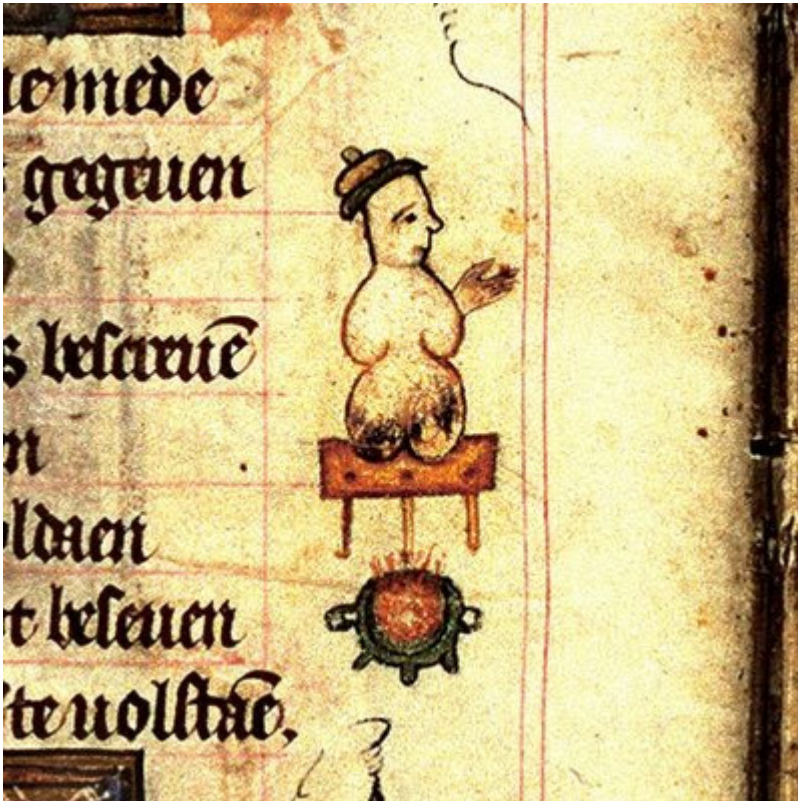 mede
gegeuen
bescreuē
n
ldaen
t beseuen
te uolstaē.